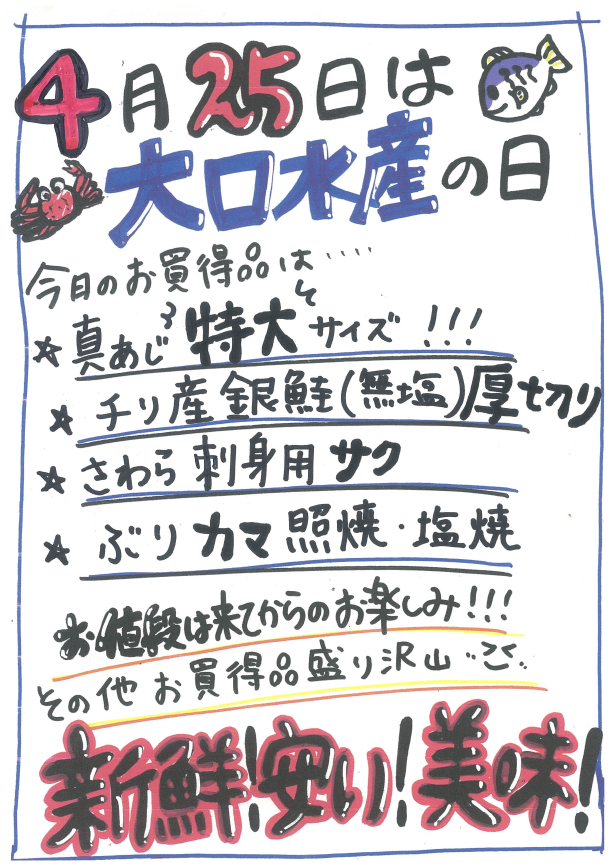 4月25日は
大口水産の日
今日のお買得品は‥‥
☆真あじ 特大サイズ!!!
☆チリ産銀鮭(無塩)厚切り
☆さわら刺身用サク
☆ぶりカマ照焼・塩焼
お値段は来てからのお楽しみ!!!
その他お買得品盛り沢山
新鮮!安い!美味!